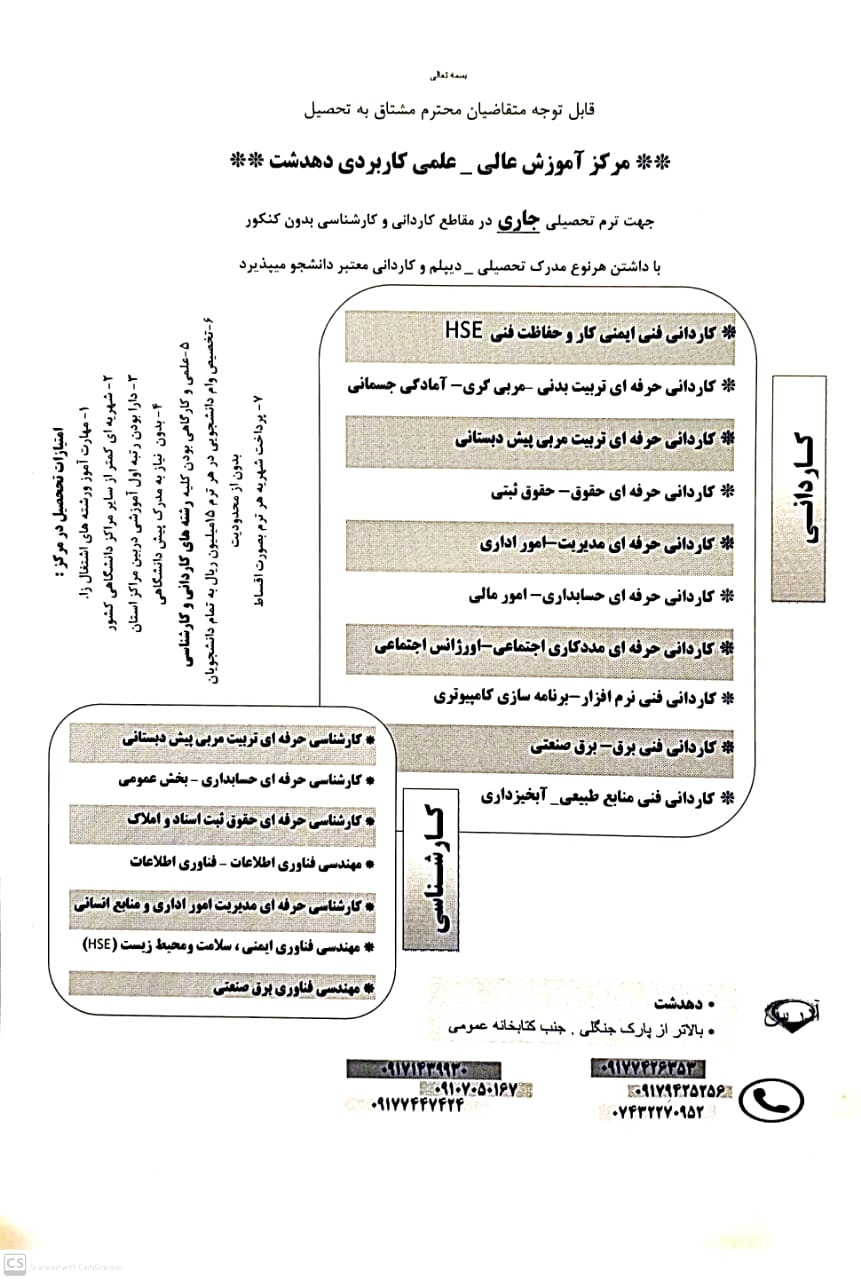 بسمه تعالی
قابل توجه متقاضیان محترم مشتاق به تحصیل
** مرکز آموزش عالی _ علمی کاربردی دهدشت **
جهت ترم تحصیلی جاری در مقاطع کاردانی و کارشناسی بدون کنکور
با داشتن هرنوع مدرک تحصیلی _ دیپلم و کاردانی معتبر دانشجو میپذیرد
کاردانی
* کاردانی فنی ایمنی کار و حفاظت فنی HSE
* کاردانی حرفه ای تربیت بدنی -مربی گری- آمادگی جسمانی
* کاردانی حرفه ای تربیت مربی پیش دبستانی
* کاردانی حرفه ای حقوق- حقوق ثبتی
* کاردانی حرفه ای مدیریت-امور اداری
* کاردانی حرفه ای حسابداری- امور مالی
* کاردانی حرفه ای مددکاری اجتماعی-اورژانس اجتماعی
* کاردانی فنی نرم افزار-برنامه سازی کامپیوتری
* کاردانی فنی برق- برق صنعتی
* کاردانی فنی منابع طبیعی_ آبخیزداری
امتیازات تحصیل در مرکز :
۱- مهارت آموز ورشته های اشتغال زا.
۲- شهریه ای کمتر از سایر مراکز دانشگاهی کشور
۳- دارا بودن رتبه اول آموزشی دربین مراکز استان
۴- بدون نیاز به مدرک پیش دانشگاهی
۵-علمی و کارگاهی بودن کلیه رشته های کاردانی و کارشناسی
۶-تخصیص وام دانشجویی در هر ترم ۱۵میلیون ریال به تمام دانشجویان
بدون از محدودیت
۷- پرداخت شهریه هر ترم بصورت اقساط
کارشناسی
* کارشناسی حرفه ای تربیت مربی پیش دبستانی
* کارشناسی حرفه ای حسابداری - بخش عمومی
* کارشناسی حرفه ای حقوق ثبت اسناد و املاک
* مهندسی فناوری اطلاعات - فناوری اطلاعات
* کارشناسی حرفه ای مدیریت امور اداری و منابع انسانی
* مهندسی فناوری ایمنی ، سلامت ومحیط زیست (HSE)
* مهندسی فناوری برق صنعتی
آدرس
• دهدشت
• بالاتر از پارک جنگلی . جنب کتابخانه عمومی
۰۹۱۷۷۴۲۶۳۵۳
۰۹۱۷۹۴۲۵۲۵۶
۰۷۴۳۲۲۷۰۹۵۲
۰۹۱۷۱۴۳۹۹۳۰
۰۹۱۰۷۰۵۰۱۶۷
۰۹۱۷۷۴۴۷۴۲۴
CS Scanned with CamScanner